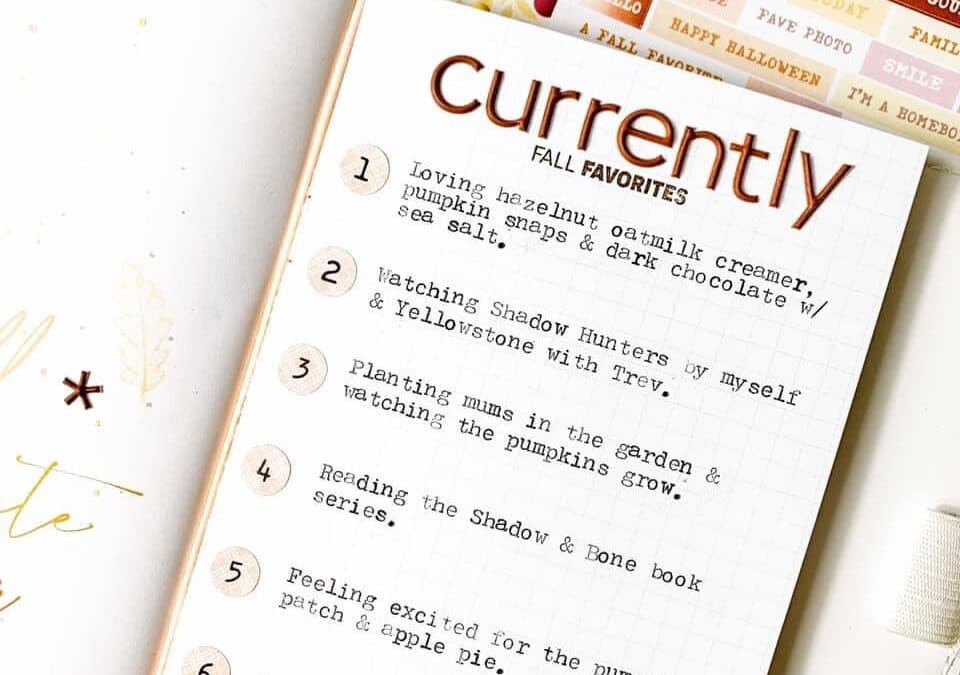 FAVE PHOTO
FAMIL
A FALL FAVORITE
HAPPY HALLOWEEN
SMILE
I'M A HOMEBO
currently
FALL FAVORITES
1
Loving hazelnut oatmilk creamer,
pumpkin snaps & dark chocolate w/
sea salt.
2
Watching Shadow Hunters by myself
& Yellowstone with Trev.
3
Planting mums in the garden &
watching the pumpkins grow.
4
Reading the Shadow & Bone book
series.
5
Feeling excited for the pum
patch & apple pie.
6